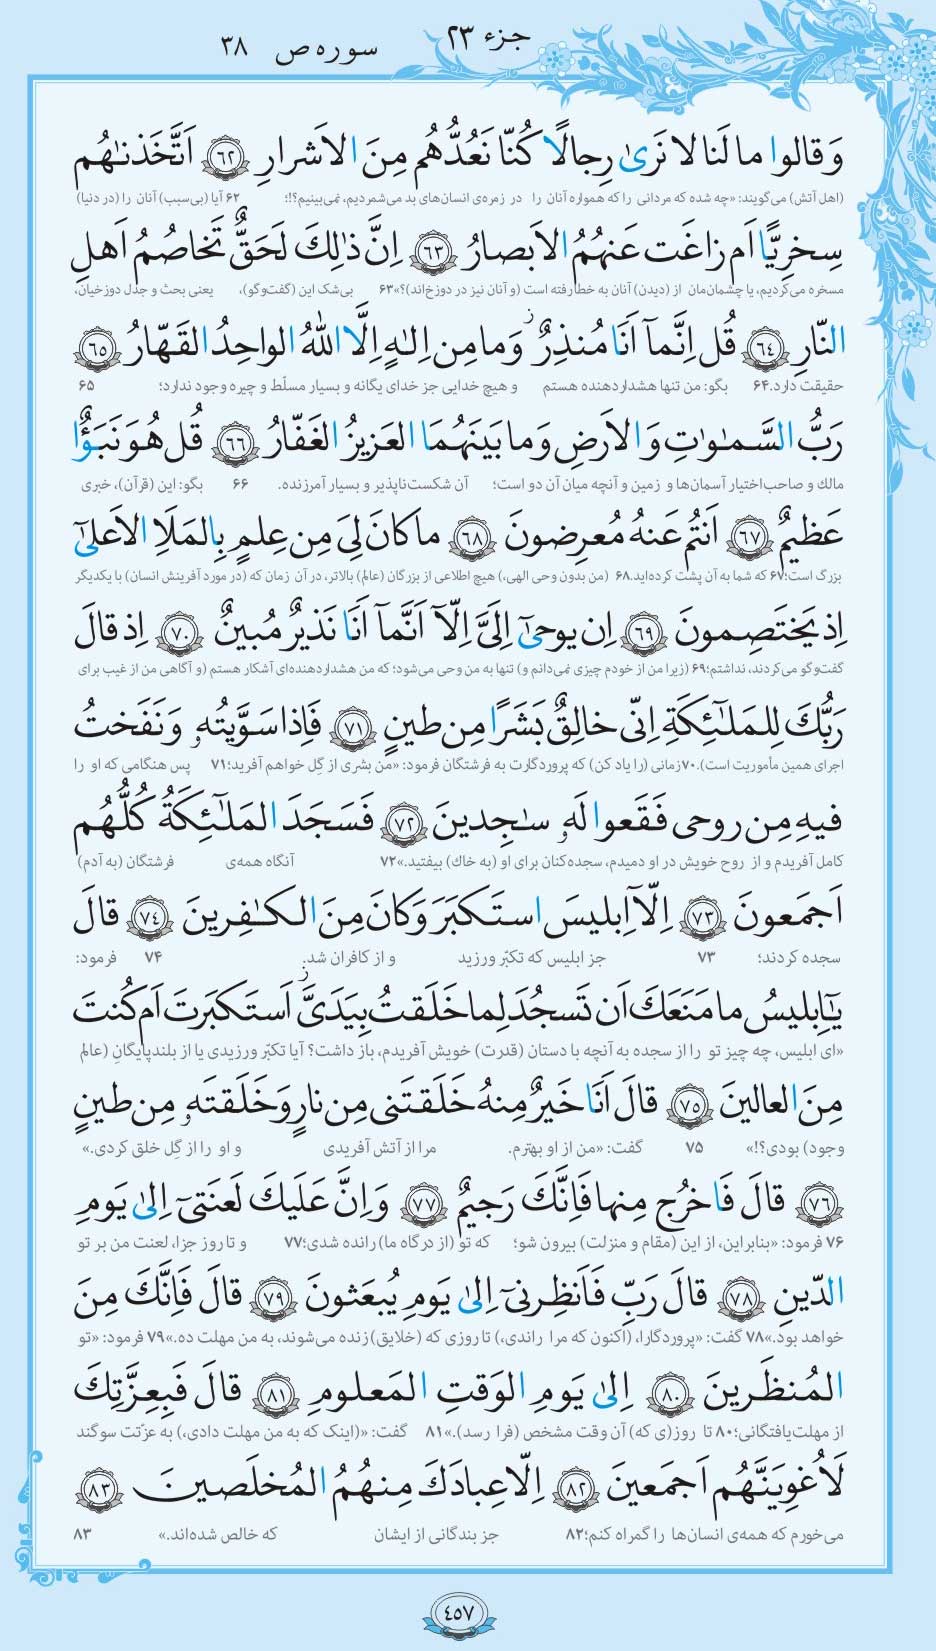 جزء ٢٣
سوره ص ٣٨
وَ قالوا ما لَنا لا نَرىٰ رِجالًا كُنّا نَعُدُّهُم مِنَ الاَشرارِ ﴿٦٢﴾ اَتَّخَذنٰهُم
(اهل آتش) می‌گویند: «چه شده که مردانی را که همواره آنان را در زمره‌ی انسان‌های بد می‌شمردیم، نمی‌بینیم؟!؛ ۶۲ آیا (بی‌سبب) آنان را (در دنیا)
سِخرِيًّا اَم زاغَت عَنهُمُ الاَبصارُ ﴿٦٣﴾ اِنَّ ذٰلِكَ لَحَقٌّ تَخاصُمُ اَهلِ
مسخره می‌کردیم، یا چشمان‌مان از (دیدن) آنان به خطا رفته است (و آنان نیز در دوزخ‌اند)؟» ۶۳ بی‌شک این (گفت‌وگو)، یعنی بحث و جدل دوزخیان،
النّارِ ﴿٦٤﴾ قُل اِنَّمآ اَنَا مُنذِرٌ ۖ وَ ما مِن اِلٰهٍ اِلَّا اللّٰهُ الواحِدُ القَهّارُ ﴿٦٥﴾
حقیقت دارد. ۶۴ بگو: من تنها هشداردهنده هستم و هیچ خدایی جز خدای یگانه و بسیار مسلّط و چیره وجود ندارد؛ ۶۵
رَبُّ السَّمٰوٰتِ وَ الاَرضِ وَ ما بَينَهُمَا العَزيزُ الغَفّارُ ﴿٦٦﴾ قُل هُوَ نَبَؤٌا
مالك و صاحب‌اختیار آسمان‌ها و زمین و آنچه میان آن دو است؛ آن شکست‌ناپذیر و بسیار آمرزنده. ۶۶ بگو: این (قرآن)، خبری
عَظيمٌ ﴿٦٧﴾ اَنتُم عَنهُ مُعرِضونَ ﴿٦٨﴾ ما كانَ لِيَ مِن عِلمٍ بِالمَلَاِ الاَعلىٰٓ
بزرگ است؛ ۶۷ که شما به آن پشت کرده‌اید. ۶۸ (من بدون وحی الهی،) هیچ اطلاعی از بزرگان (عالم) بالاتر، در آن زمان که (در مورد آفرینش انسان) با یکدیگر
اِذ يَختَصِمونَ ﴿٦٩﴾ اِن يوحىٰٓ اِلَيَّ اِلّآ اَنَّمآ اَنَا نَذيرٌ مُبينٌ ﴿٧٠﴾ اِذ قالَ
گفت‌وگو می‌کردند، نداشتم؛ ۶۹ (زیرا من از خودم چیزی نمی‌دانم و) تنها به من وحی می‌شود؛ که من هشداردهنده‌ای آشکار هستم (و آگاهی من از غیب برای
رَبُّكَ لِلمَلٰٓئِكَةِ اِنّي خالِقٌ بَشَرًا مِن طينٍ ﴿٧١﴾ فَاِذا سَوَّيتُهٗ وَ نَفَختُ
اجرای همین مأموریت است). ۷۰ زمانی (را یاد کن) که پروردگارت به فرشتگان فرمود: «من بشری از گِل خواهم آفرید؛ ۷۱ پس هنگامی که او را
فيهِ مِن روحي فَقَعوا لَهٗ سٰجِدينَ ﴿٧٢﴾ فَسَجَدَ المَلٰٓئِكَةُ كُلُّهُم
کامل آفریدم و از روح خویش در او دمیدم، سجده‌کنان برای او (به خاك) بیفتید.» ۷۲ آنگاه همه‌ی فرشتگان (به آدم)
اَجمَعونَ ﴿٧٣﴾ اِلّآ اِبليسَ استَكبَرَ وَ كانَ مِنَ الكٰفِرينَ ﴿٧٤﴾ قالَ
سجده کردند؛ ۷۳ جز ابلیس که تکبّر ورزید و از کافران شد. ۷۴ فرمود:
يٰٓاِبليسُ ما مَنَعَكَ اَن تَسجُدَ لِما خَلَقتُ بِيَدَيَّ ۖ اَستَكبَرتَ اَم كُنتَ
«ای ابلیس، چه چیز تو را از سجده به آنچه با دستان (قدرت) خویش آفریدم، باز داشت؟ آیا تکبّر ورزیدی یا از بلندپایگان (عالم
مِنَ العالينَ ﴿٧٥﴾ قالَ اَنَا خَيرٌ مِنهُ خَلَقتَني مِن نارٍ وَ خَلَقتَهٗ مِن طينٍ
وجود) بودی؟!» ۷۵ گفت: «من از او بهترم. مرا از آتش آفریدی و او را از گِل خلق کردی.»
﴿٧٦﴾ قالَ فَاخرُج مِنها فَاِنَّكَ رَجيمٌ ﴿٧٧﴾ وَ اِنَّ عَلَيكَ لَعنَتيٓ اِلىٰ يَومِ
۷۶ فرمود: «بنابراین، از این (مقام و منزلت) بیرون شو؛ که تو (از درگاه ما) رانده شدی؛ ۷۷ و تا روز جزا، لعنت من بر تو
الدّينِ ﴿٧٨﴾ قالَ رَبِّ فَاَنظِرنيٓ اِلىٰ يَومِ يُبعَثونَ ﴿٧٩﴾ قالَ فَاِنَّكَ مِنَ
خواهد بود.» ۷۸ گفت: «پروردگارا، (اکنون که مرا راندی،) تا روزی که (خلایق) زنده می‌شوند، به من مهلت ده.» ۷۹ فرمود: «تو
المُنظَرينَ ﴿٨٠﴾ اِلىٰ يَومِ الوَقتِ المَعلومِ ﴿٨١﴾ قالَ فَبِعِزَّتِكَ
از مهلت‌یافتگانی؛ ۸۰ تا روز(ی که) آن وقت مشخص (فرا رسد).» ۸۱ گفت: «(اینک که به من مهلت دادی،) به عزّتت سوگند
لَاُغوِيَنَّهُم اَجمَعينَ ﴿٨٢﴾ اِلّا عِبادَكَ مِنهُمُ المُخلَصينَ ﴿٨٣﴾
می‌خورم که همه‌ی انسان‌ها را گمراه کنم؛ ۸۲ جز بندگانی از ایشان که خالص شده‌اند.» ۸۳
٤٥٧